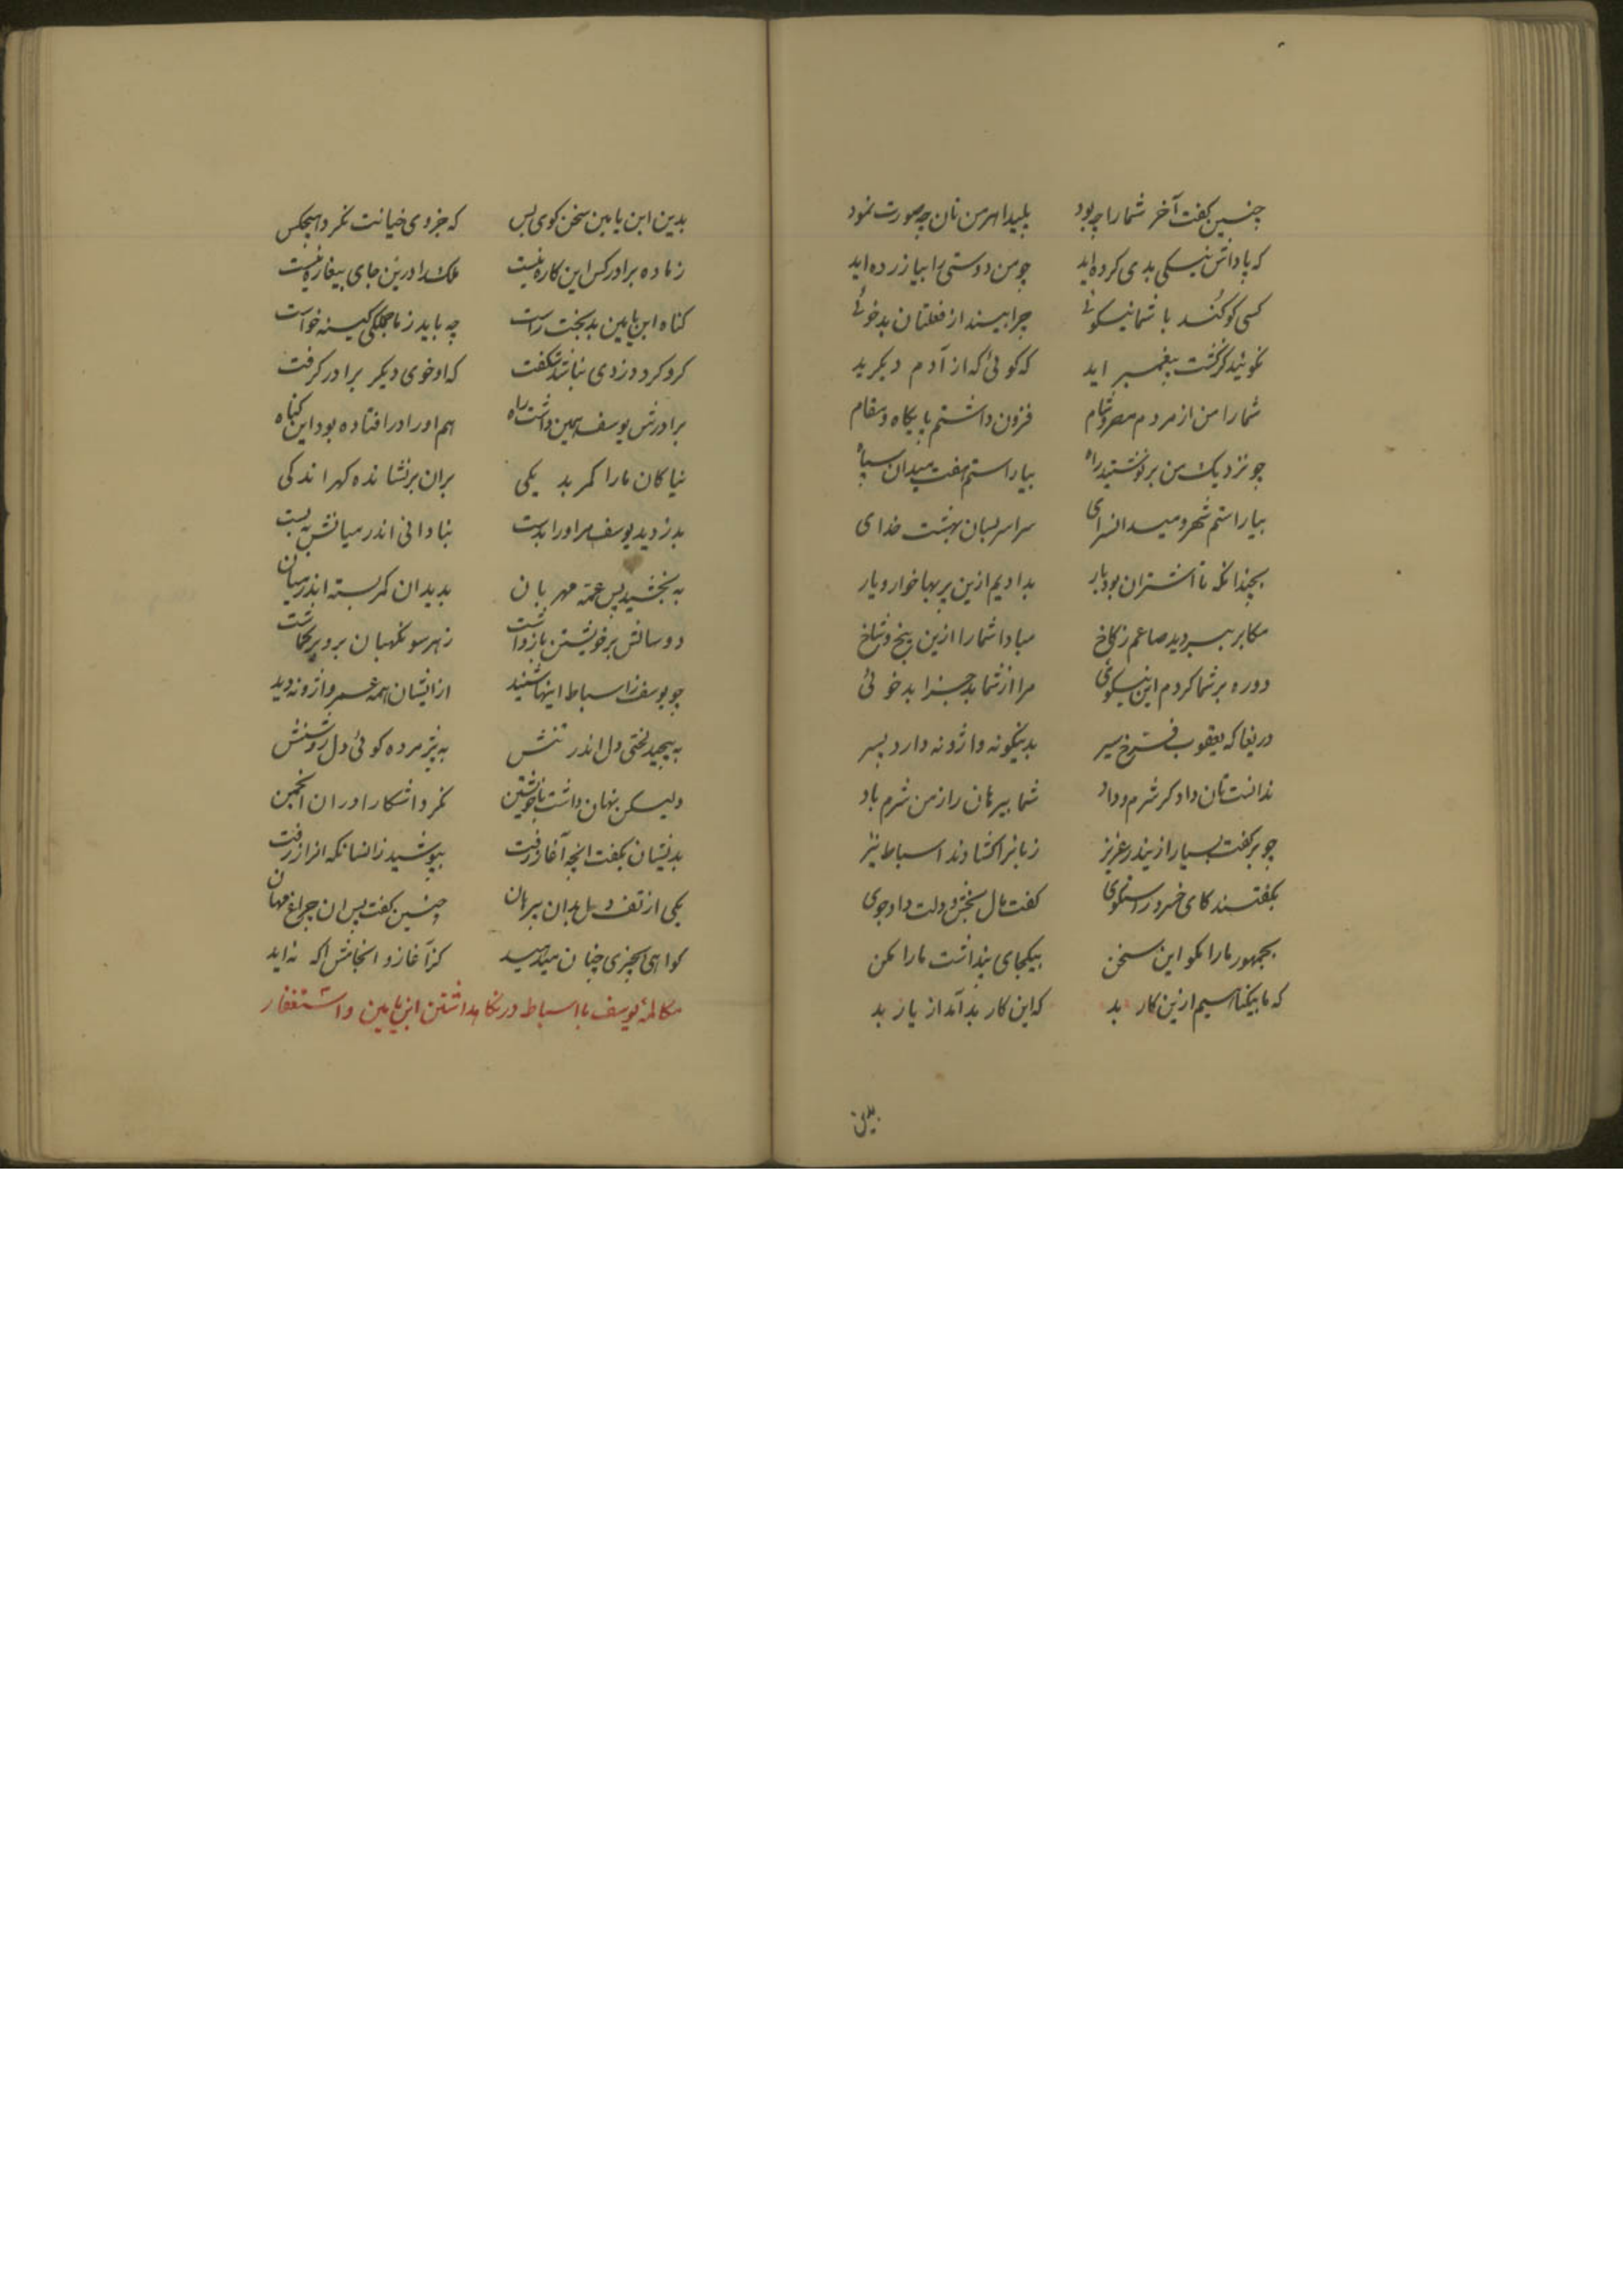 چنین گفت آخر شما را چه بود پلید اهرمن تان چه صورت نمود
که پاداش نیکی بدی کرده اید چو من دوستی را بیازرده اید
کسی کو کند با شما نیکوئی چرا بیند از فعلتان بدخوئی
نکوئید کز کشت پیغمبر اید که کوئی که از آدم دیکرید
شما را من از مردم مصر و شام فزون داشتم پایکاه و مقام
چو نزدیک من برنوشتید راه بیاراستم هفت میدان سپاه
بیاراستم شهر و میدان سرای سراسر بسان بهشت خدای
بچندانکه تا اشتران بود بار بدادیم ازین پر بها خواروبار
مکابر ببردید صاعم ز کاخ مبادا شما را ازین بیخ و شاخ
دو ره بر شما کردم این نیکوی مرا از شما بد جزا بدخوئی
دریغا که یعقوب فرخ سیر بدینکونه واژونه دارد پسر
ندانست تان داد کر شرم و داد شما بیرهان را ز من شرم باد
چو بر گفت بسیار ازیندر عزیز زبانرا کشادند اسباط نیز
بکفتند کای خسرو راستکوی
بجمهور ما را مکو این سخن بیکجای پنداشت ما را مکن
که ما بیکناهیم ازین کار بد که این کار بد آمد از یار بد
بدین
بدین ابن یامین سخن کوی بس که جز وی خیانت نکرد هیچکس
ز ما ده برادر کس این کاره نیست ملک را درین جای بیغاره نیست
کناه ابن یامین بدبخت راست چه باید ز ما جملکی کینه خواست
کرو کرد دزدی نباشد شکفت که او خوی دیکر برادر کرفت
برادرش یوسف همین داشت راه هم او را در افتاده بود این کناه
نیاکان ما را کمر بد یکی بران برنشانده کهر اندکی
بدزدید یوسف مر او را بدست بنادانی اندر میانش به بست
به بخشید پس عمه مهربان بدیدان کمر بسته اندر میان
دو سالش بر خویشتن بازداشت ز هر سو نکهبان برو برکماشت
چو یوسف ز اسباط اینها شنید از ایشان همه عمر واژونه دید
به پیچید لختی دل اندر تنش به پژمرده کوئی دل روشنش
ولیکن بنهان داشت با خویشتن نکرد اشکارا در ان انجمن
بدیشان نکفت انچه آغاز رفت بپوشید زانسانکه انراز رفت
یکی از تف دل بدان بیرهان چنین کفت پس ان چراغ مهان
کواهی بچیزی چنان میدهید کز آغاز و انجامش اکه نه اید
مکالمهٔ یوسف با اسباط در نکاهداشتن ابن یامین و استغفار